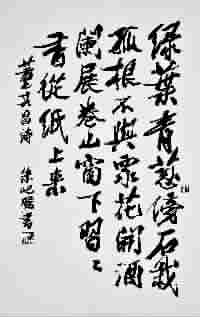 綠葉青葱傍石栽
孤根不與眾花開酒
闌展卷山窗下習〻
香從紙上来
董其昌詩